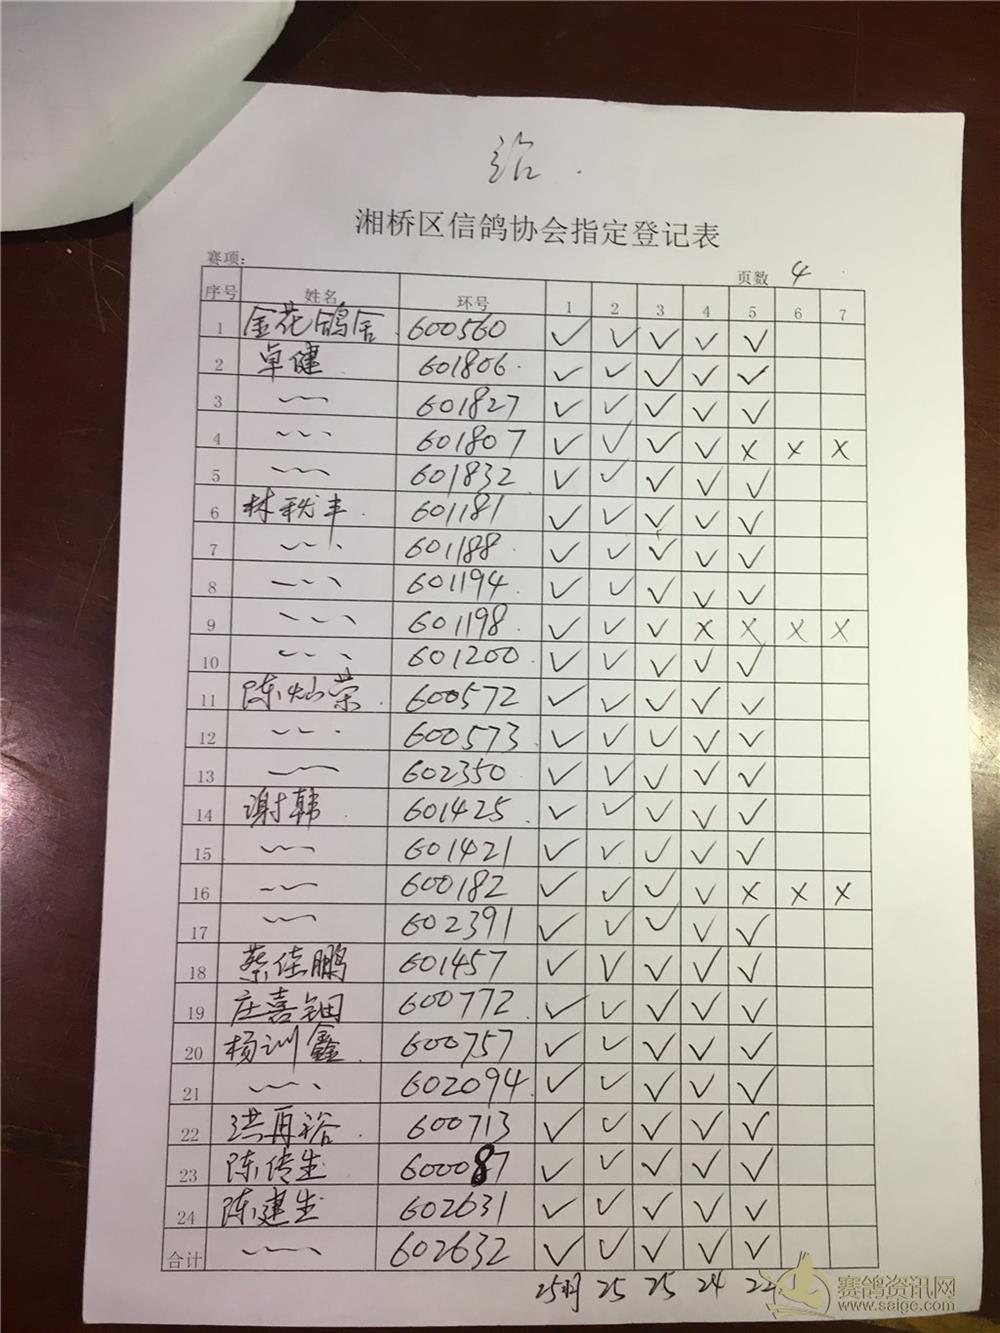 湘桥区信鸽协会指定登记表
赛项:
页数 4
序号 姓名 环号 1 2 3 4 5 6 7
1 金花鸽舍 600560 ✓ ✓ ✓ ✓ ✓
2 卓健 601806 ✓ ✓ ✓ ✓ ✓
3 601827 ✓ ✓ ✓ ✓ ✓
4 601807 ✓ ✓ ✓ ✓ × × ×
5 601832 ✓ ✓ ✓ ✓ ✓
6 林秋丰 601181 ✓ ✓ ✓ ✓ ✓
7 601188 ✓ ✓ ✓ ✓ ✓
8 601194 ✓ ✓ ✓ ✓ ✓
9 601198 ✓ ✓ ✓ × × × ×
10 601200 ✓ ✓ ✓ ✓ ✓
11 陈灿荣 600572 ✓ ✓ ✓ ✓ ✓
12 600573 ✓ ✓ ✓ ✓ ✓
13 602350 ✓ ✓ ✓ ✓ ✓
14 谢韩 601425 ✓ ✓ ✓ ✓ ✓
15 601421 ✓ ✓ ✓ ✓ ✓
16 600182 ✓ ✓ ✓ ✓ × × ×
17 602391 ✓ ✓ ✓ ✓ ✓
18 蔡佳鹏 601457 ✓ ✓ ✓ ✓ ✓
19 庄喜钿 600772 ✓ ✓ ✓ ✓ ✓
20 杨训鑫 600757 ✓ ✓ ✓ ✓ ✓
21 602094 ✓ ✓ ✓ ✓ ✓
22 洪再裕 600713 ✓ ✓ ✓ ✓ ✓
23 陈传生 600087 ✓ ✓ ✓ ✓ ✓
24 陈建生 602631 ✓ ✓ ✓ ✓ ✓
合计 602632 ✓ ✓ ✓ ✓ ✓
25 25 25 24 22
赛鸽资讯网
www.saige.com